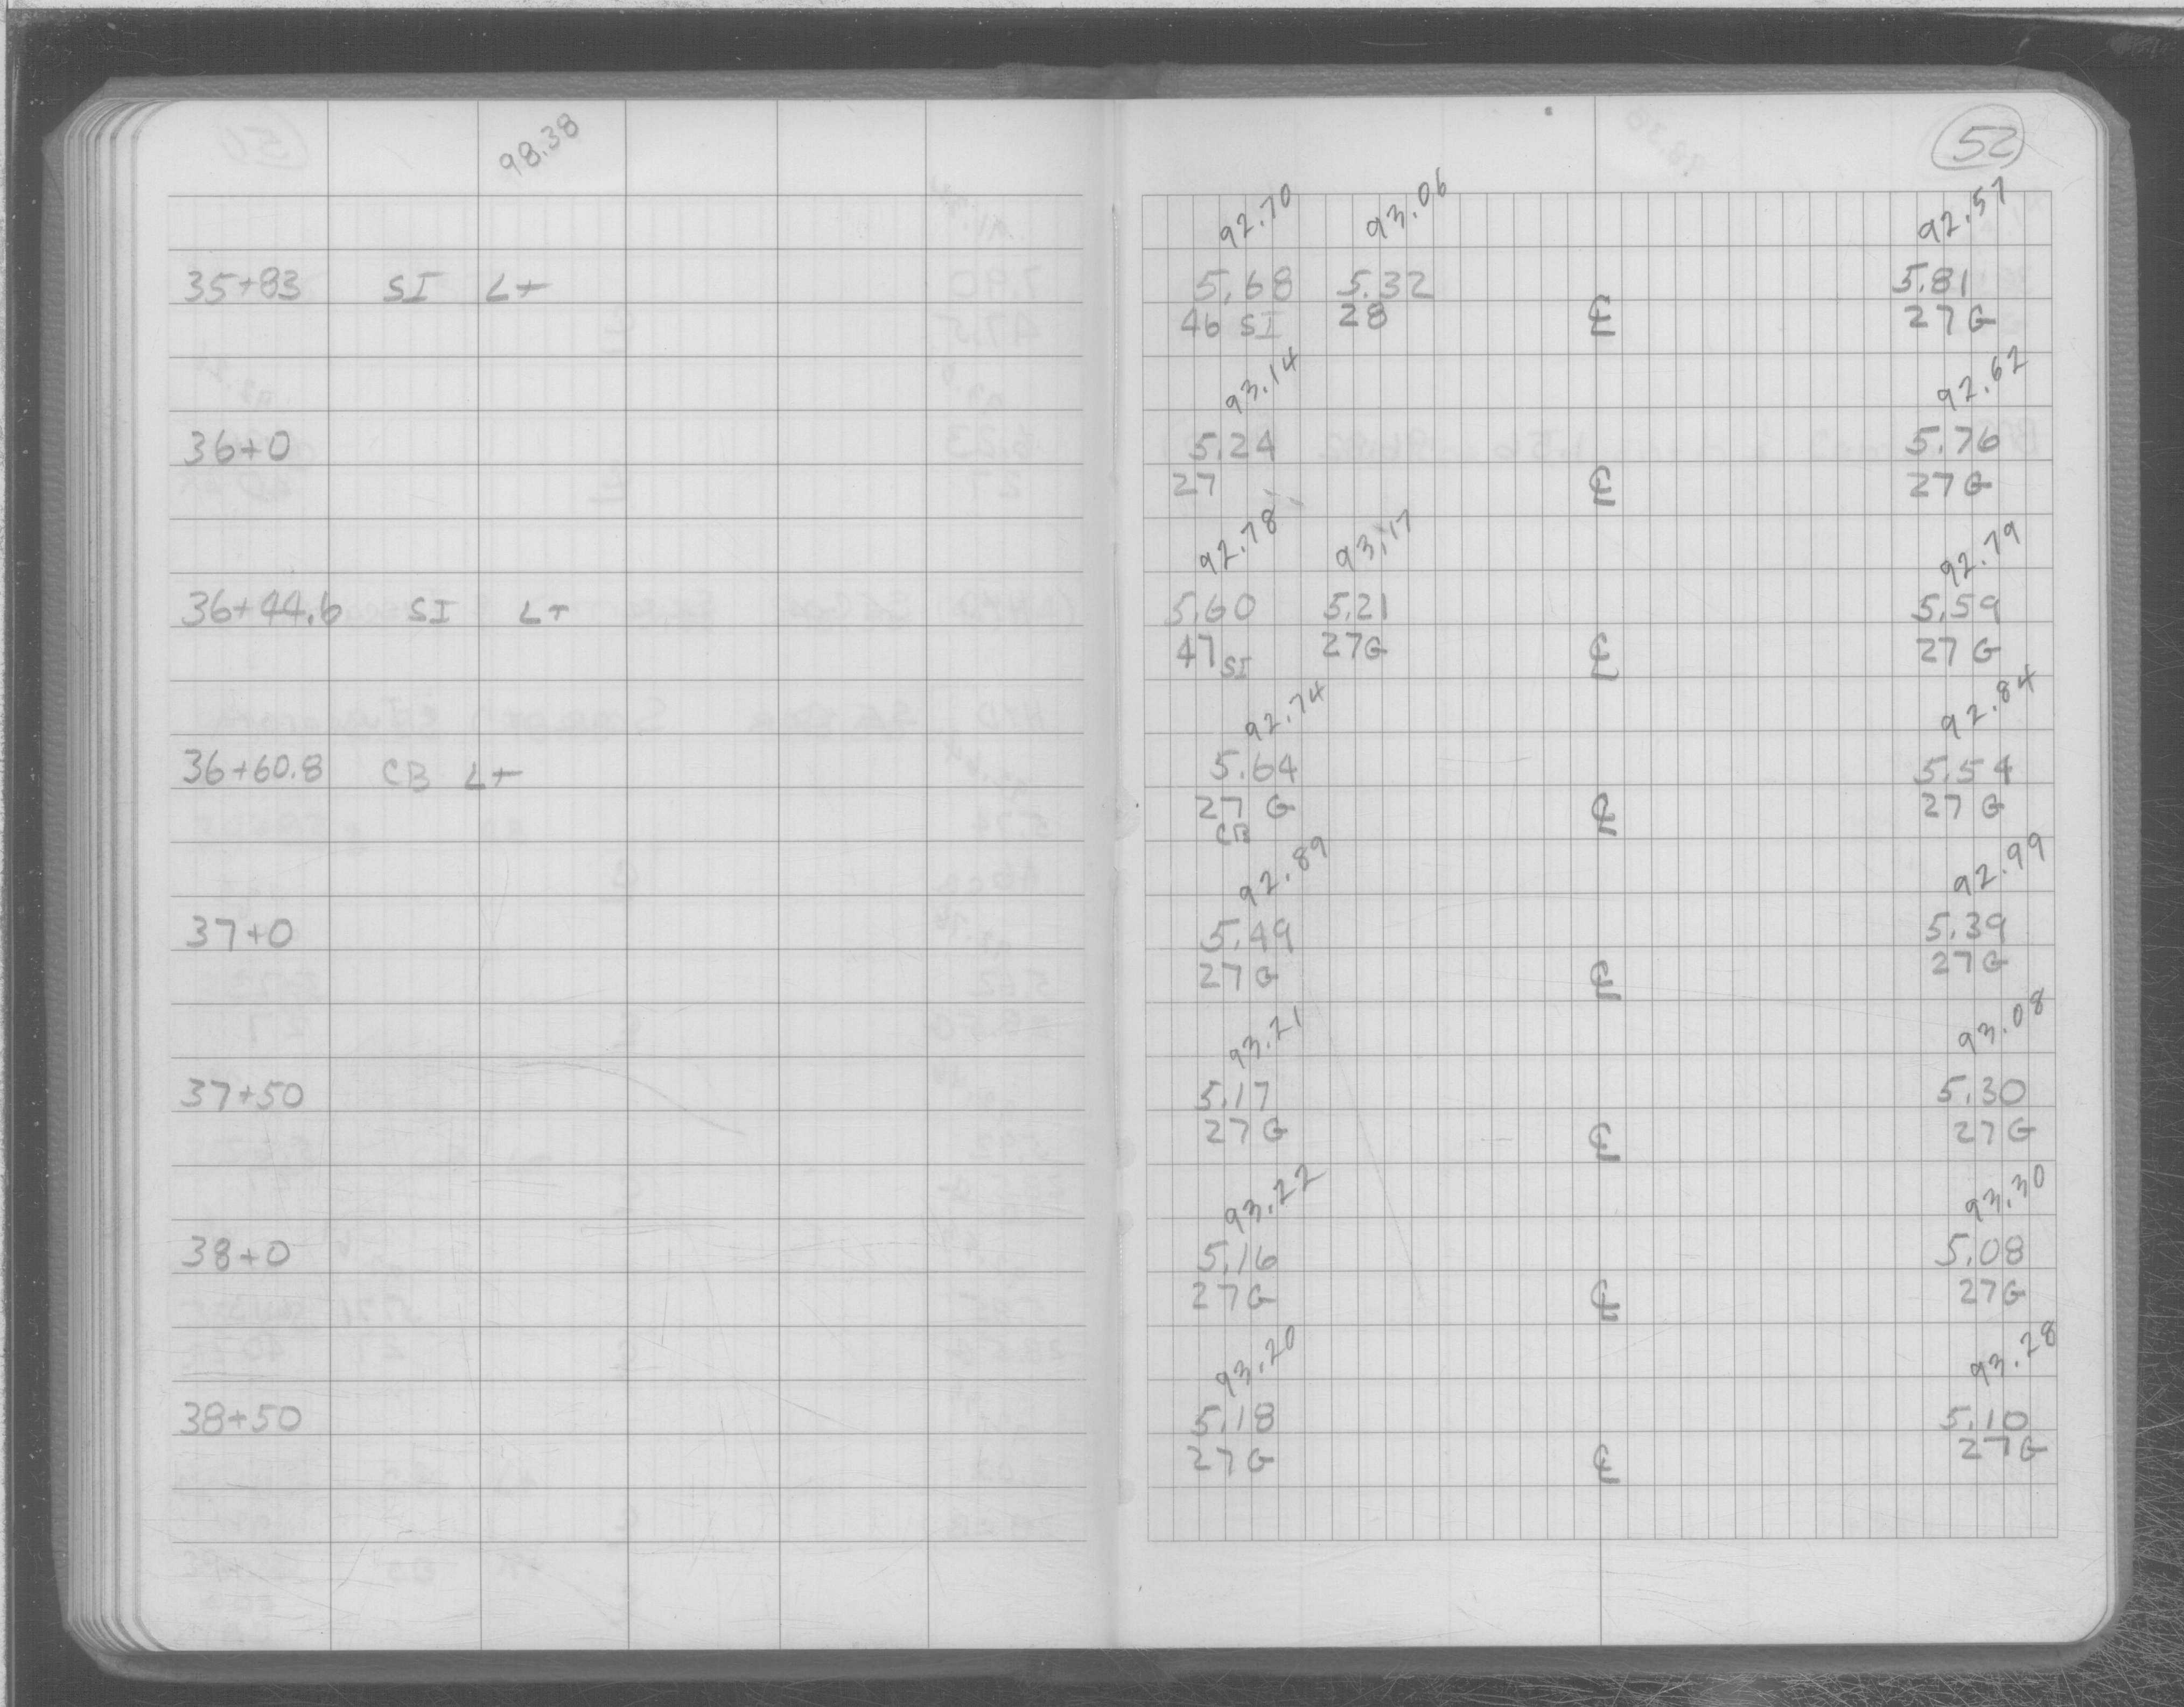 98.38
52
92.70 93.06 92.57
35+83 SI Lt 5.68 5.32 5.81
46 SI 28 ℄ 27 G
93.14 92.62
36+0 5.24 5.76
27 ℄ 27 G
92.78 93.17 92.79
36+44.6 SI Lt 5.60 5.21 5.59
47 SI 27G ℄ 27 G
92.74 92.84
36+60.8 CB Lt 5.64 5.54
27 G ℄ 27 G
CB
92.89 92.99
37+0 5.49 5.39
27 G ℄ 27 G
93.21 93.08
37+50 5.17 5.30
27 G ℄ 27 G
93.22 93.30
38+0 5.16 5.08
27 G ℄ 27 G
93.20 93.28
38+50 5.18 5.10
27 G ℄ 27 G